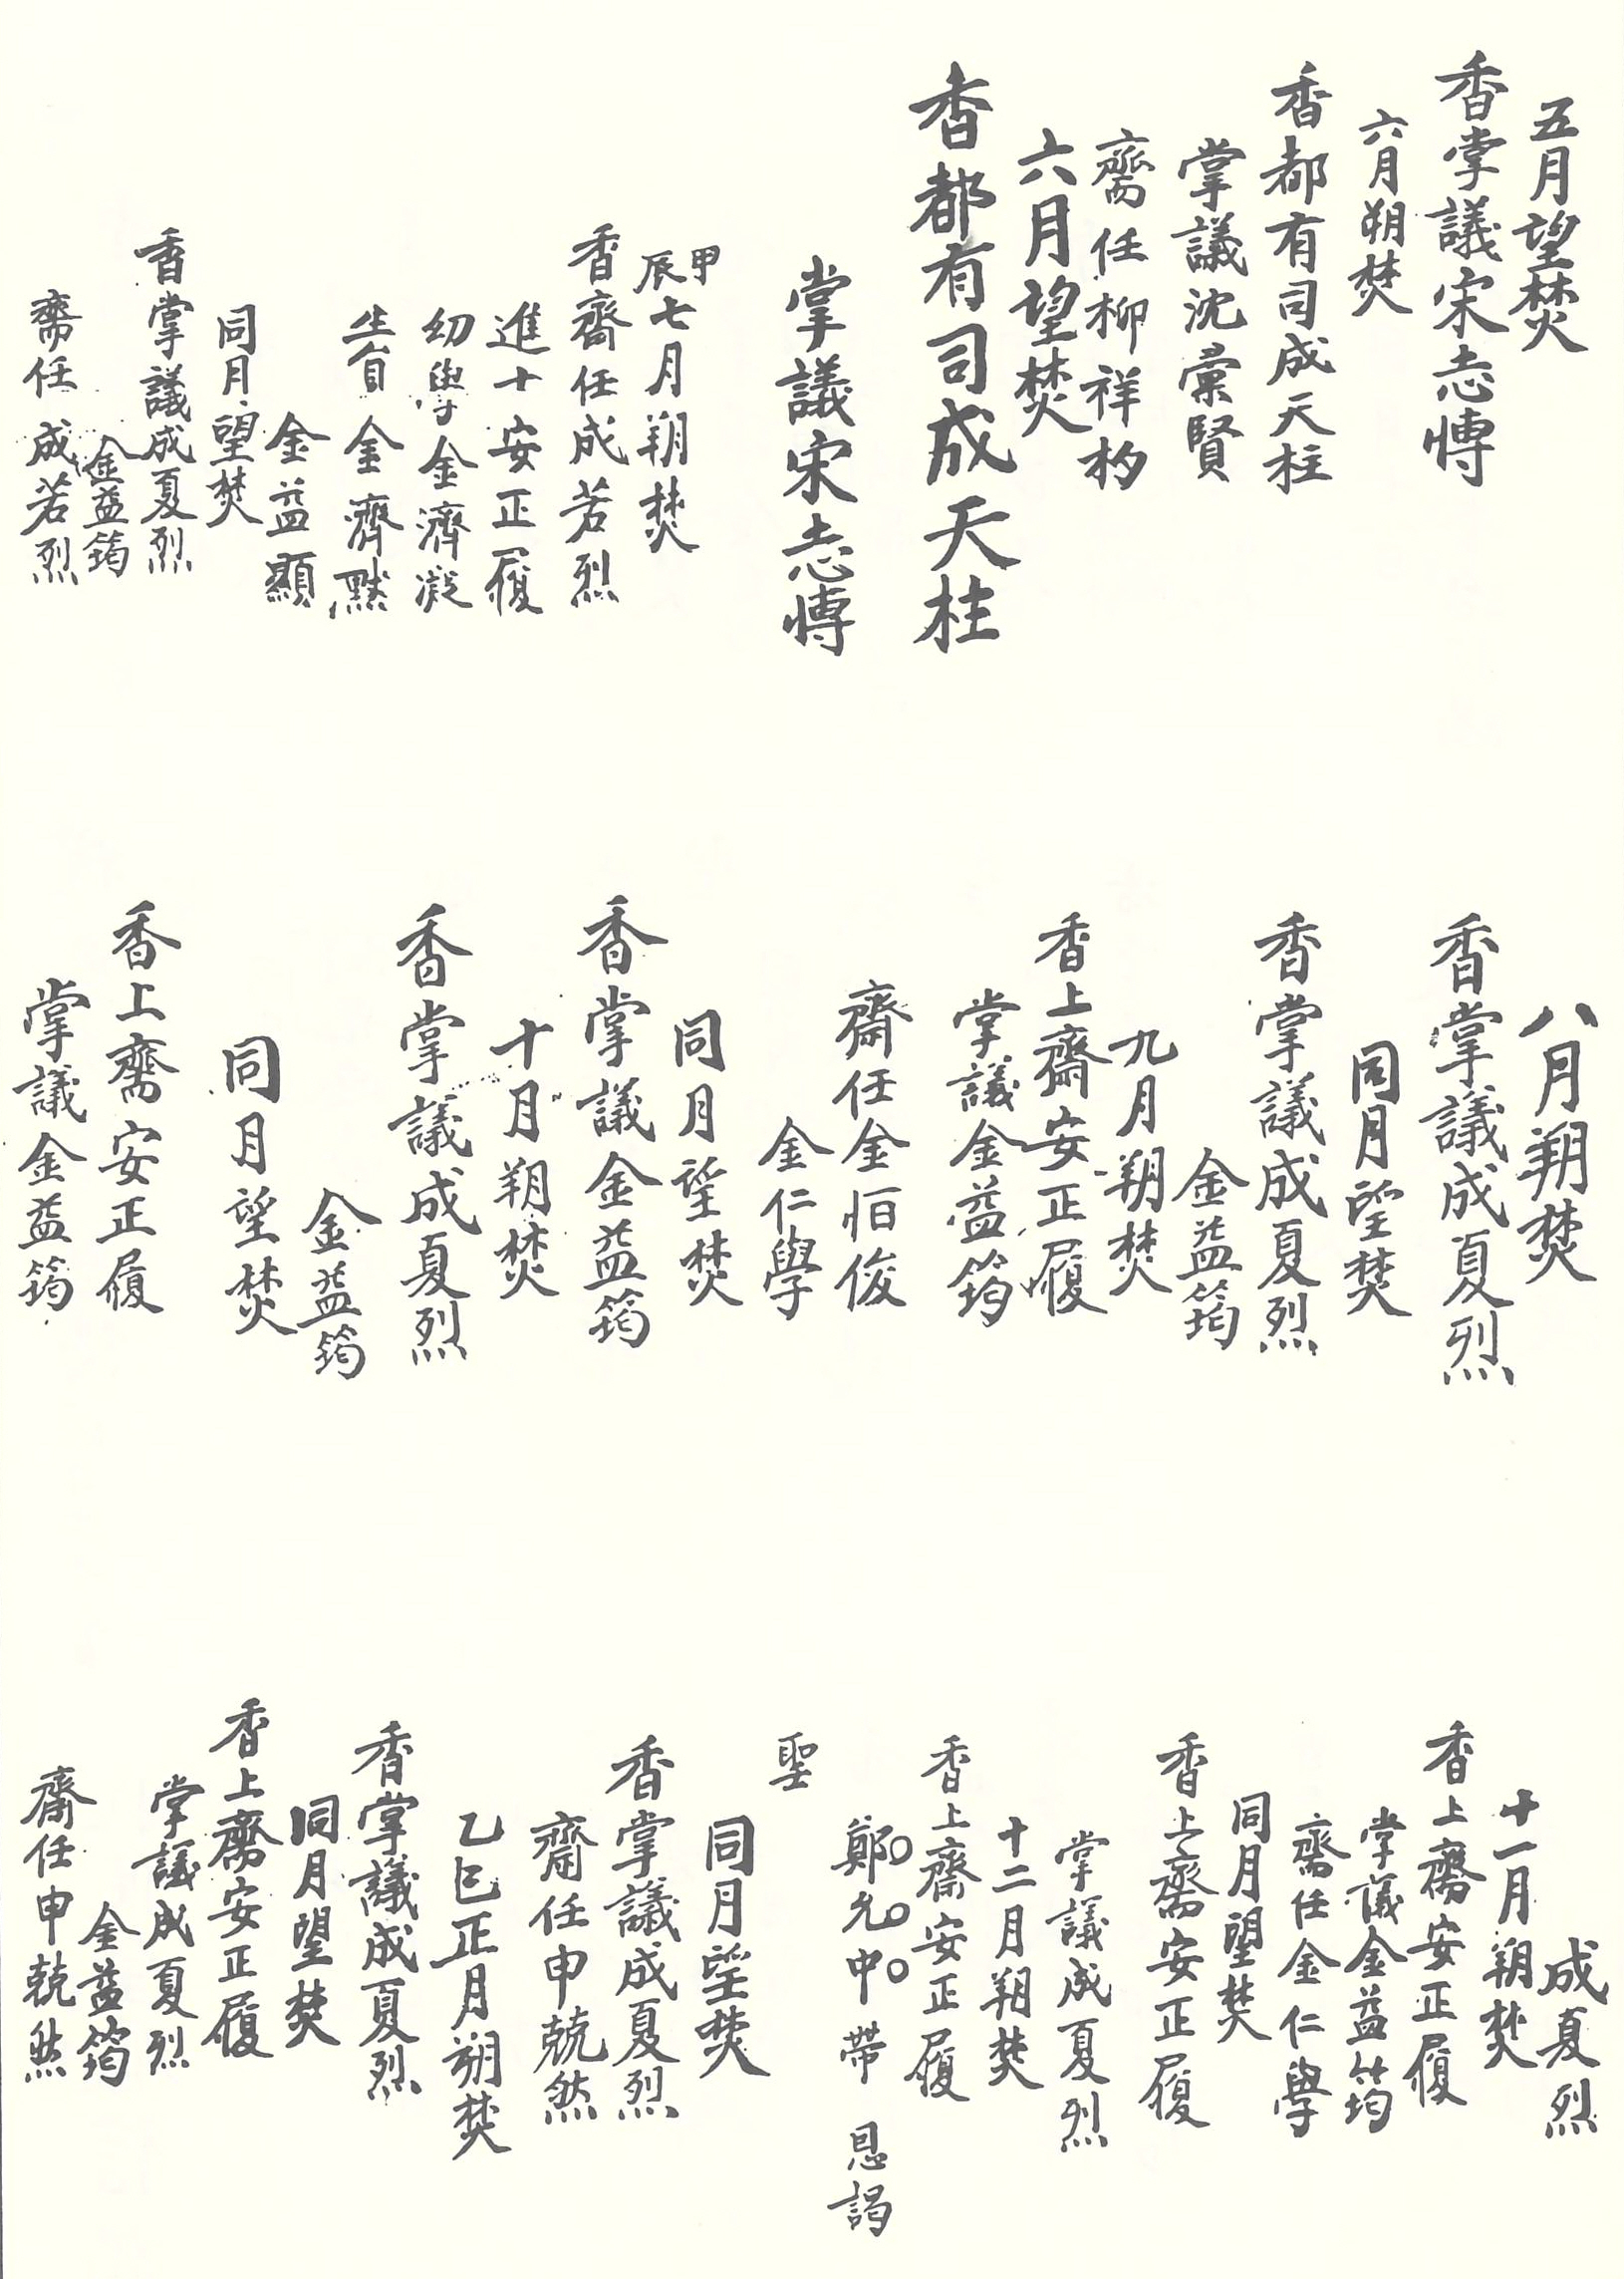 五月望焚
香掌議宋志慱
六月朔焚
香都有司成天柱
掌議沈彙賢
齋任柳祥杓
六月望焚
香都有司成天柱
掌議宋志慱
甲辰七月朔焚
香齋任成若烈
進士安正履
幼學金濟凝
生員金濟默
金益顯
同月望焚
香掌議成夏烈
金益筠
齋任成若烈
八月朔焚
香掌議成夏烈
同月望焚
香掌議成夏烈
金益筠
九月朔焚
香上齋安正履
掌議金益筠
齋任金恒俊
金仁學
同月望焚
香掌議金益筠
十月朔焚
香掌議成夏烈
金益筠
同月望焚
香上齋安正履
掌議金益筠
成夏烈
十一月朔焚
香上齋安正履
掌議金益筠
齋任金仁學
同月望焚
香上齋安正履
掌議成夏烈
十二月朔焚
香上齋安正履
鄭允中帶恩謁
聖
同月望焚
香掌議成夏烈
齋任申兢然
乙巳正月朔焚
香掌議成夏烈
同月望焚
香上齋安正履
掌議成夏烈
金益筠
齋任申兢然